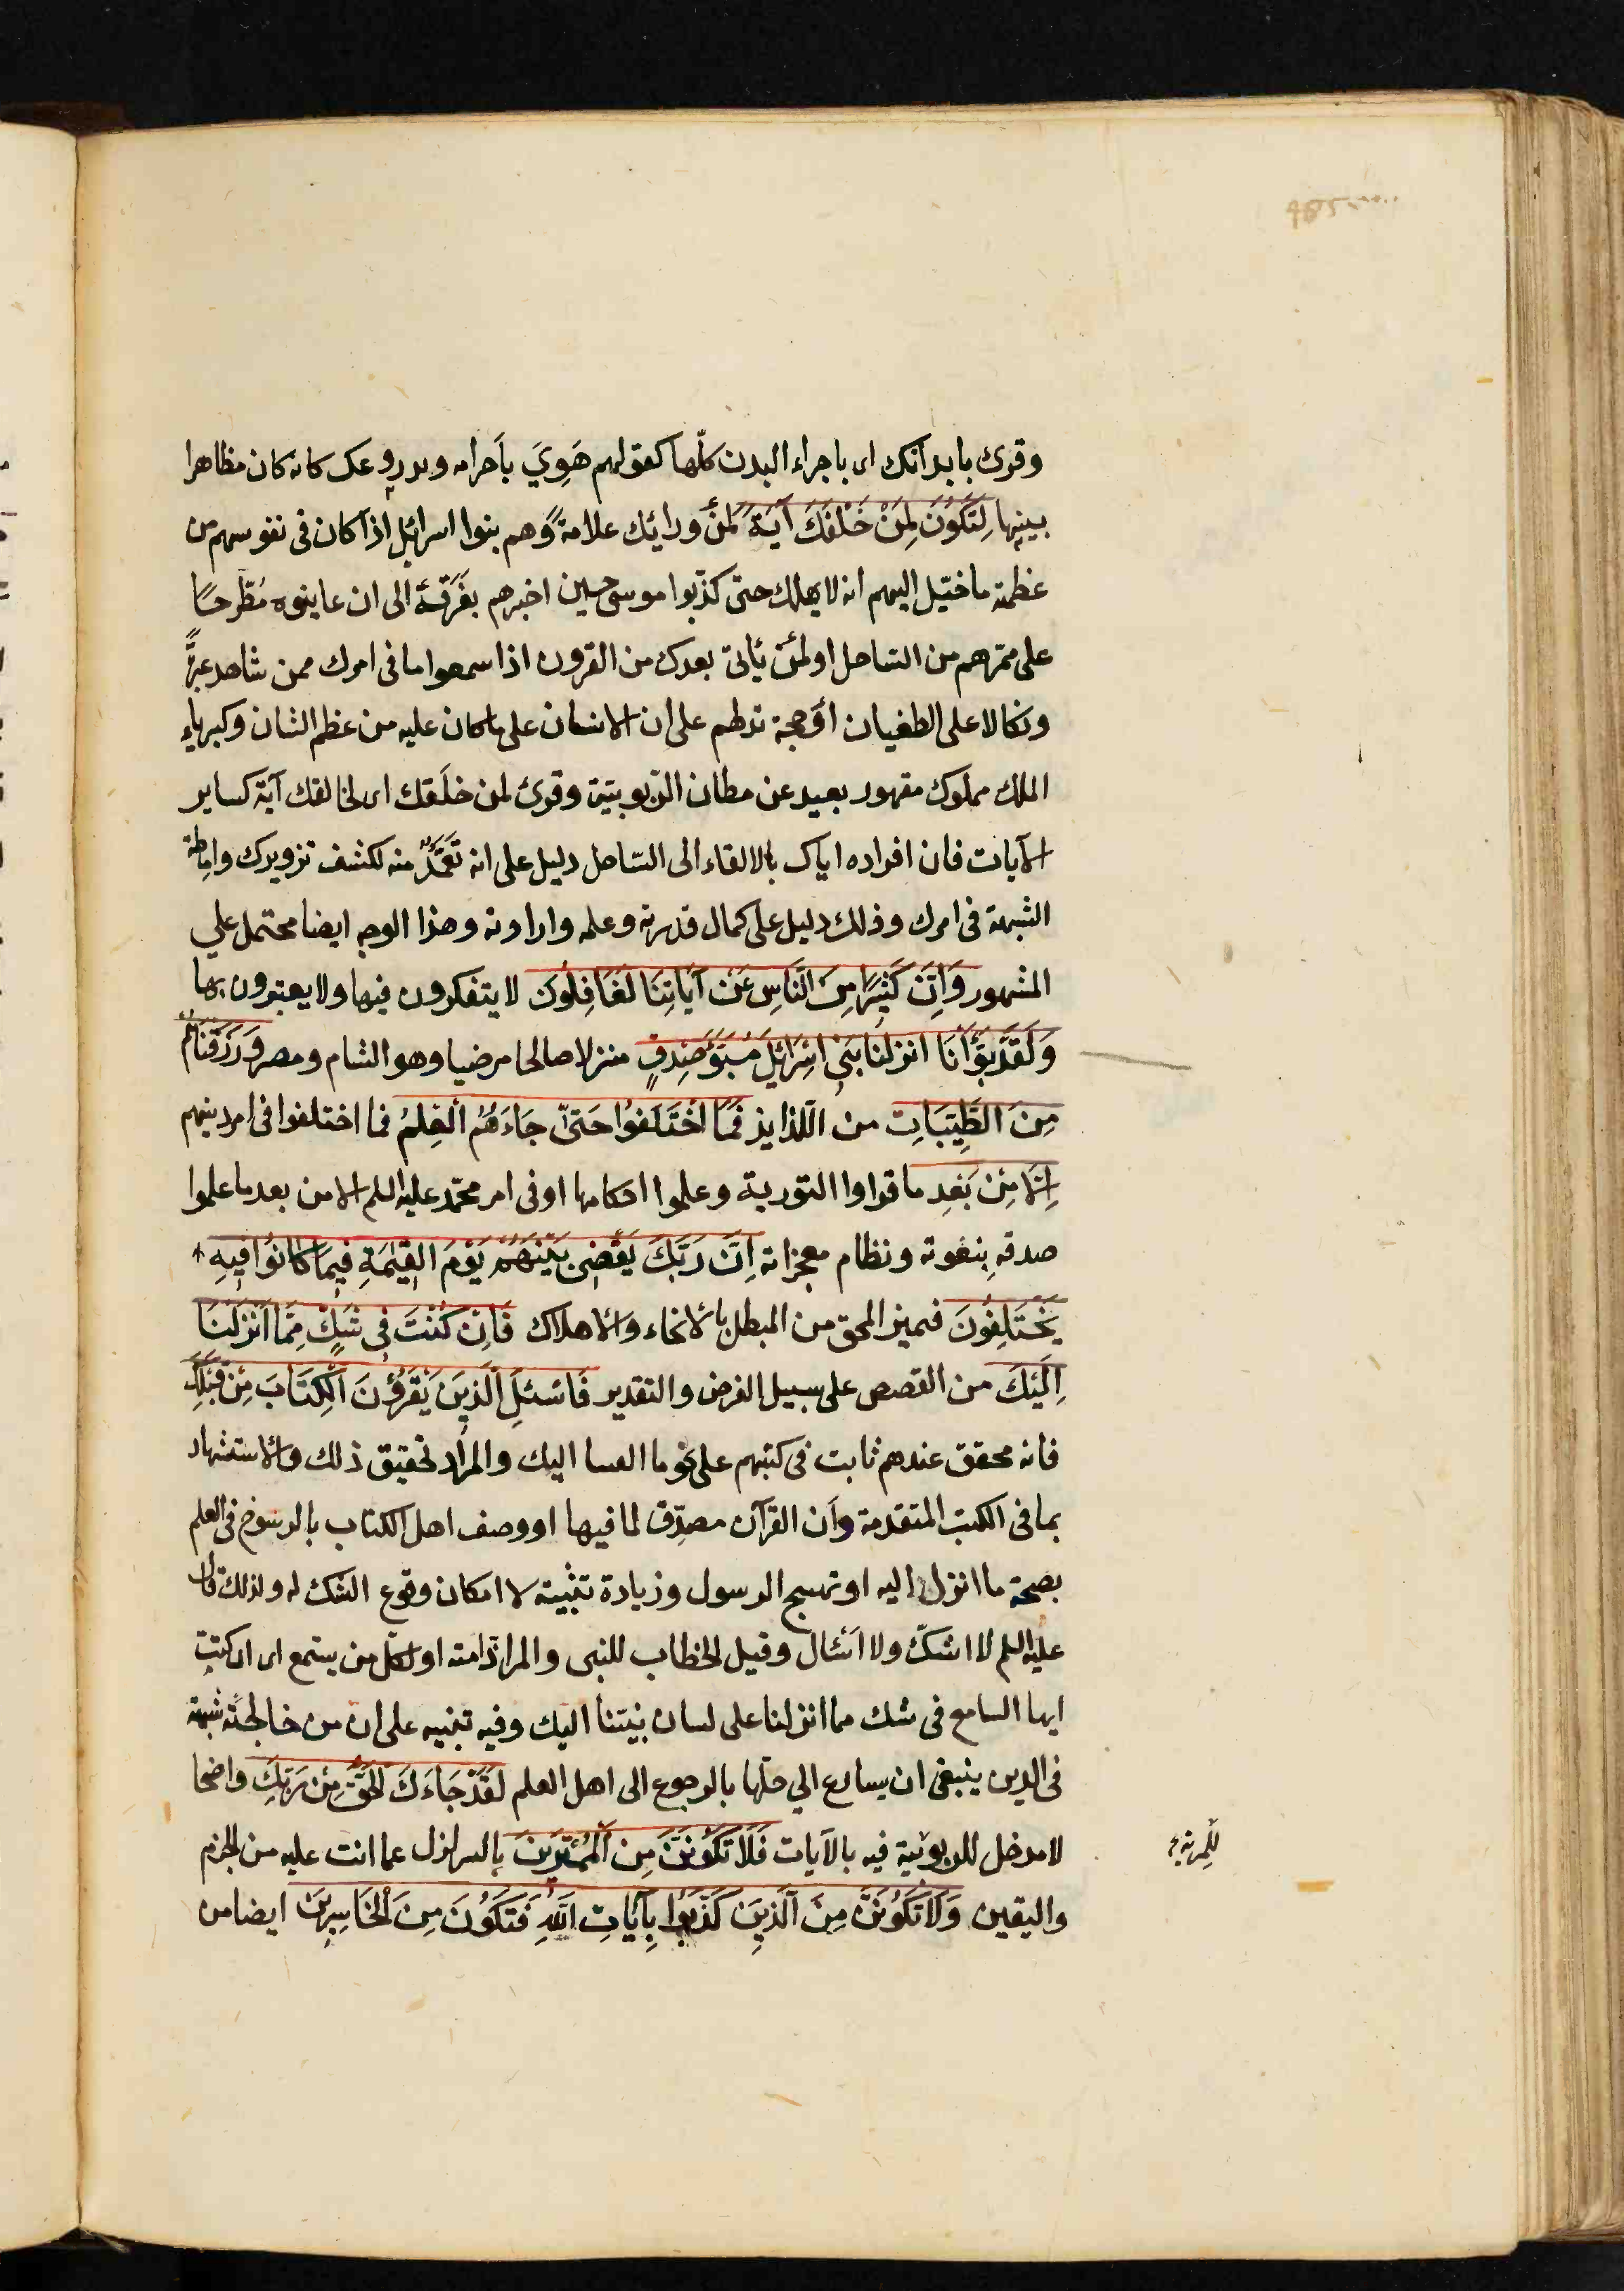 وقرئ بابدانك اى باجراء البدن كلّها كقولهم هَوِيَ بأجرامه وبدروعك كانه كان مظاهرا
بينها لِتَكُونَ لِمَنْ خَلْفَكَ آيَةً لمن ورائك علامة وهم بنوا اسرائيل اذ كان فى نفوسهم من
عظمته ما خيّل اليهم انه لا يهلك حتى كذّبوا موسى حين اخبرهم بغَرَقه الى ان عاينوه مُطّرحًا
على ممرهم من الساحل او لمن يأتى بعدك من القرون اذا سمعوا ما فى امرك ممن شاهد عبرةً
ونكالا على الطغيان أو حجة تدلهم على ان الانسان على ما كان عليه من عظم الشان وكبرياء
الملك مملوك مقهور بعيد عن مظان الرّبوبيّة وقرئ لمن خلَقَك اى لخالقك آية كساير
الآيات فان افراده اياك بالالقاء الى الساحل دليل على انه تَعَمُّدٌ منه لكشف تزويرك واماطة
الشبهة فى امرك وذلك دليل على كمال قدرته وعلمه وارادته وهذا الوجه ايضا محتمل على
المشهور وَاِنَّ كَثِيرًا مِنَ النَّاسِ عَنْ آيَاتِنَا لَغَافِلُونَ لا يتفكرون فيها ولا يعتبرون بها
وَلَقَدْ بَوَّأْنَا انزلنا بَنِى اِسْرَائِيلَ مُبَوَّأَ صِدْقٍ منزلا صالحا مرضيا وهو الشام ومصر وَرَزَقْنَاهُمْ
مِنَ الطَّيِّبَاتِ من اللذايذ فَمَا اخْتَلَفُوا حَتَّى جَاءَهُمُ الْعِلْمُ فما اختلفوا فى امر دينهم
اِلَّا مِنْ بَعْدِ ما قراوا التورية وعلموا احكامها او فى امر محمّد عليه السلم الا من بعد ما علموا
صدقه بِنعوته وتظام معجزاته اِنَّ رَبَّكَ يَقْضِى بَيْنَهُمْ يَوْمَ الْقِيٰمَةِ فِيمَا كَانُوا فِيهِ
يَخْتَلِفُونَ فيميز المحق من المبطل بالانجاء والاهلاك فَاِنْ كُنْتَ فِى شَكٍّ مِمَّا اَنْزَلْنَا
اِلَيْكَ من القصص على سبيل الفرض والتقدير فَاسْئَلِ الَّذِينَ يَقْرَؤُنَ الْكِتَابَ مِنْ قَبْلِكَ
فانه محقق عندهم ثابت فى كتبهم على نحو ما القينا اليك والمراد تحقيق ذلك والاستشهاد
بما فى الكتب المتقدمة وأن القرآن مصدّق لما فيها او وصف اهل الكتاب بالرسوخ فى العلم
بصحة ما انزل اليه او تهييج الرسول وزيادة تثبيته لا امكان وقوع الشك له ولذلك قال
عليه السلم لا اشكّ ولا اسْئال وقيل الخطاب للنبى والمراد امته او لكل من يستمع اى ان كنت
ايها السامع فى شك مما انزلنا على لسان نبيّنا اليك وفيه تنبيه على ان من خالجَتْه شبهة
فى الدين ينبغى ان يسارع الي حلّها بالرجوع الى اهل العلم لَقَدْ جَاءَكَ الْحَقُّ مِنْ رَبِّكَ واضحا
لا مدخل للربوبية فيه بالآيات فَلَا تَكُونَنَّ مِنَ الْمُمْتَرِينَ بالتزلزل عما انت عليه من الجزم
للمرية
واليقين وَلَا تَكُونَنَّ مِنَ الَّذِينَ كَذَّبُوا بِآيَاتِ اللهِ فَتَكُونَ مِنَ الْخَاسِرِينَ ايضا من